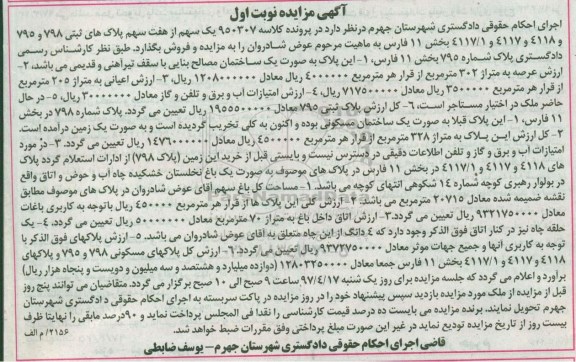 آگهی مزایده نوبت اول
اجرای احکام حقوقی دادگستری شهرستان جهرم درنظر دارد در پرونده کلاسه ۹۵۰۳۰۷ یک سهم از هفت سهم پلاک های ثبتی ۷۹۸ و ۷۹۵
و ۴۱۱۸ و ۴۱۱۷ و ۴۱۱۷/۱ بخش ۱۱ فارس به ماهیت مرحوم عوض شادروان را به مزایده و فروش بگذارد. طبق نظر کارشناس رسمی
دادگستری پلاک شماره ۷۹۵ بخش ۱۱ فارس، ۱-این پلاک به صورت یک ساختمان مصالح بنایی با سقف تیرآهنی و قدیمی می باشد، ۲-
ارزش عرصه به متراژ ۳۰۲ مترمربع از قرار هر مترمربع ۴۰۰۰۰۰۰ ریال معادل ۱۲۰۸۰۰۰۰۰۰ ریال، ۳-ارزش اعیانی به متراژ ۲۰۵ مترمربع
از قرار هر مترمربع ۳۵۰۰۰۰۰ ریال معادل ۷۱۷۵۰۰۰۰۰ ریال، ۴-ارزش امتیازات آب و برق و تلفن و گاز معادل ۳۰۰۰۰۰۰۰ ریال، ۵-در حال
حاضر ملک در اختیار مستأجر است، ۶-کل ارزش پلاک ثبتی ۷۹۵ معادل ۱۹۵۵۵۰۰۰۰۰ ریال تعیین می گردد. پلاک شماره ۷۹۸ در بخش
۱۱ فارس، ۱-این پلاک قبلا به صورت یک ساختمان مسکونی بوده و اکنون به کلی تخریب گردیده است و به صورت یک زمین درآمده است.
۲-کل ارزش این پلاک به متراژ ۳۲۸ مترمربع از قرار هر مترمربع ۴۵۰۰۰۰۰ ریال معادل ۱۴۷۶۰۰۰۰۰۰ ریال تعیین می گردد. ۳-در مورد
امتیازات آب و برق و گاز و تلفن اطلاعات دقیقی در دسترس نیست و بایستی قبل از خرید این زمین (پلاک ۷۹۸) از ادارات استعلام گردد پلاک
های ۴۱۱۸ و ۴۱۱۷ و ۴۱۱۷/۱ در بخش ۱۱ فارس در پلاک های موصوف به صورت یک باغ نخلستان خشکیده چاه آب و حوض و اتاق واقع
در بولوار رهبری کوچه شماره ۱۴ شکوهی انتهای کوچه می باشد. ۱-مساحت کل باغ سهم آقای عوض شادروان در پلاک های موصوف مطابق
نقشه ضمیمه شده معادل ۲۰۷۱۵ مترمربع می باشد. ۲-ارزش کلی این پلاک ها از قرار هر مترمربع ۴۵۰۰۰۰ ریال باتوجه به کاربری باغات
معادل ۹۳۲۱۷۵۰۰۰۰ ریال تعیین می گردد. ۳-ارزش اتاق داخل باغ به متراژ ۷۰ مترمربع معادل ۵۰۰۰۰۰۰۰ ریال تعیین می گردد. ۴-یک
حلقه چاه نیز در کنار اتاق فوق الذکر وجود دارد که ۴ دانگ از این چاه متعلق به آقای عوض شادروان می باشد. ۵-ارزش پلاکهای فوق الذکر با
توجه به کاربری آنها و جمیع جهات موثر معادل ۹۳۷۲۷۵۰۰۰۰ ریال تعیین می گردد. ۶-ارزش کل پلاکهای مسکونی ۷۹۸ و ۷۹۵ و پلاکهای
۴۱۱۸ و ۴۱۱۷ و ۴۱۱۷/۱ بخش ۱۱ فارس جمعا معادل ۱۲۸۰۳۲۵۰۰۰۰ (دوازده میلیارد و هشتصد و سه میلیون و دویست و پنجاه هزار ریال)
برآورد و اعلام می گردد که جلسه مزایده برای روز یک شنبه ۹۷/۴/۱۷ ساعت ۹ صبح الی ۱۰ صبح برگزار می گردد. متقاضیان می توانند پنج روز
قبل از مزایده از ملک مورد مزایده بازدید سپس پیشنهاد خود را در روز مزایده در پاکت سربسته به اجرای احکام حقوقی دادگستری شهرستان
جهرم تحویل نمایند. برنده مزایده می بایست ده درصد قیمت کارشناسی را نقدا فی المجلس پرداخت نماید و ۹۰درصد مابقی را نهایتا ظرف
بیست روز از تاریخ مزایده تودیع نماید در غیر این صورت مبلغ پرداختی وفق مقررات ضبط خواهد شد. ۲۱۵۶/ م الف
قاضی اجرای احکام حقوقی دادگستری شهرستان جهرم-یوسف ضابطی